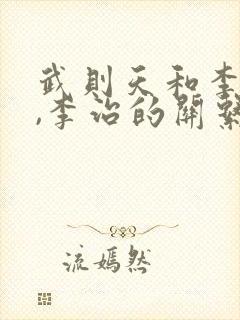 武則天和李
,李治的關繫
流嫣然